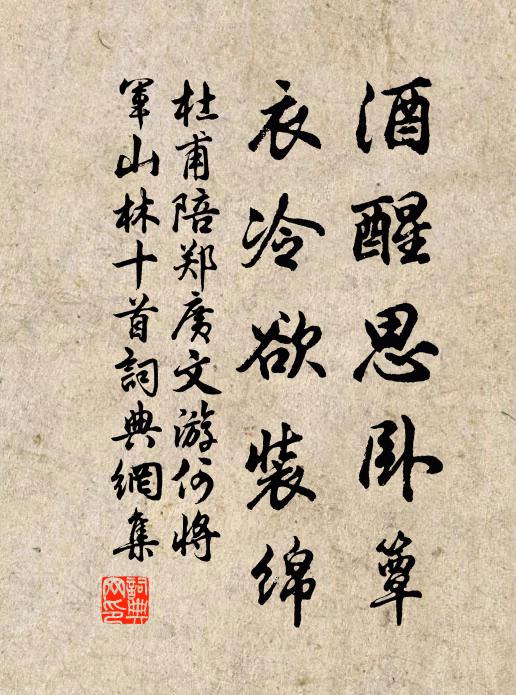 酒醒思卧簟
衣冷欲装绵
杜甫陪郑广文游何将
军山林十首詞典網集
詞典网印